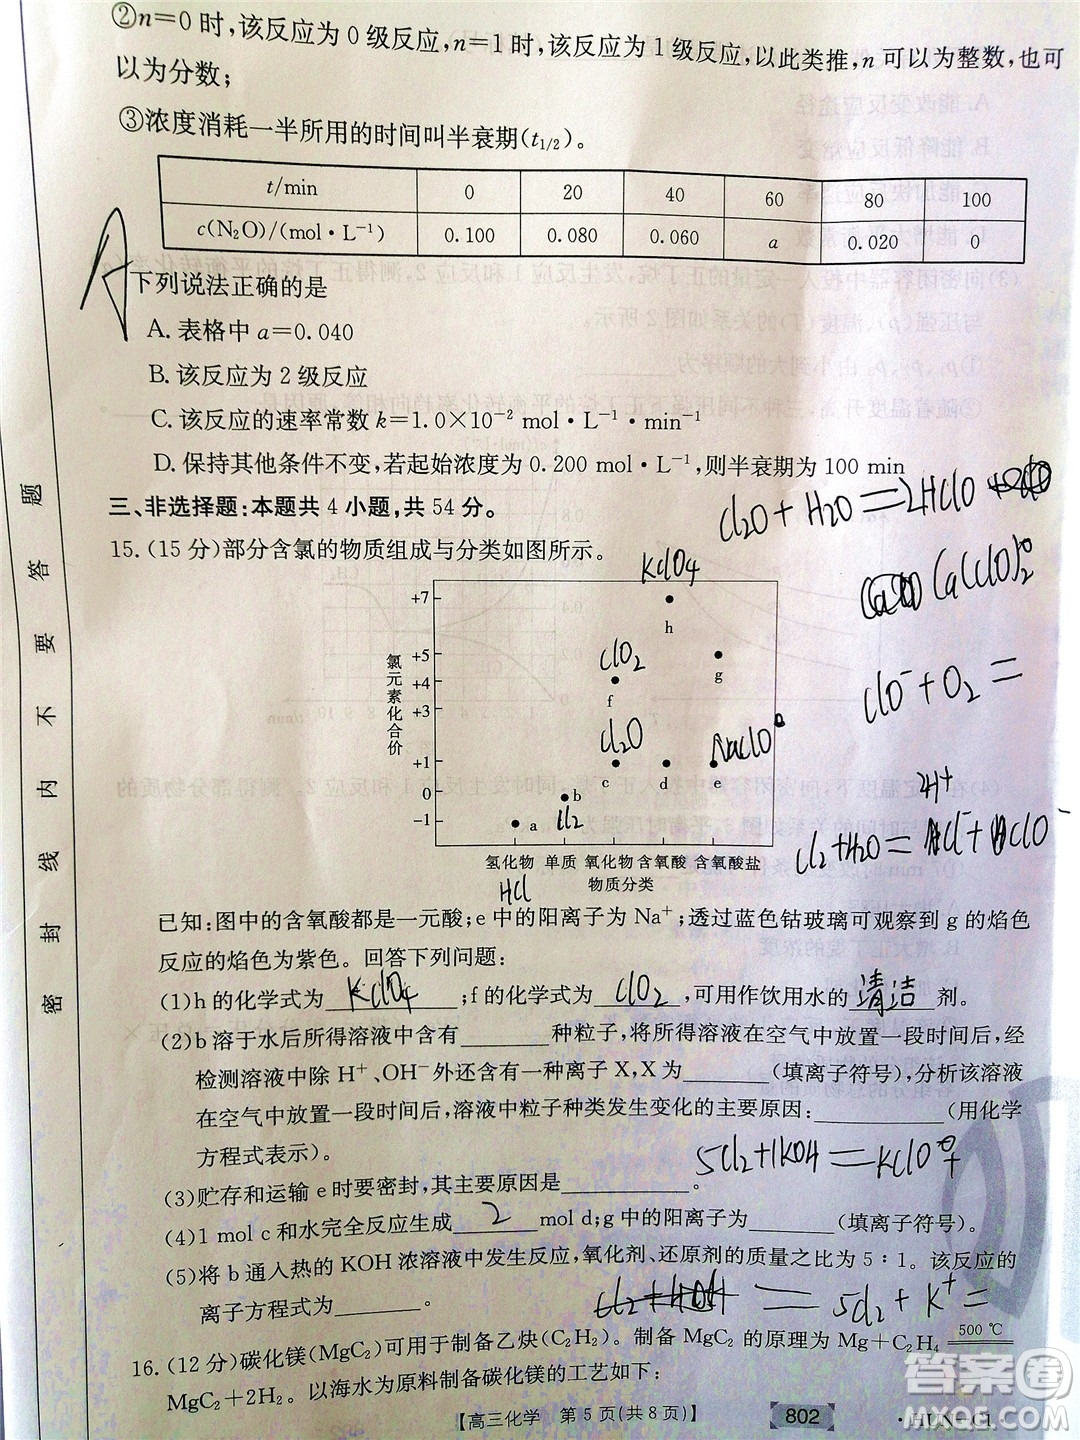 ②n=0时,该反应为0级反应,n=1时,该反应为1级反应,以此类推,n可以为整数,也可
以为分数;
③浓度消耗一半所用的时间叫半衰期(t₁/₂)。
t/min 0 20 40 60 80 100
c(N₂O)/(mol·L⁻¹) 0.100 0.080 0.060 a 0.020 0
A
下列说法正确的是
A. 表格中a=0.040
B. 该反应为2级反应
C. 该反应的速率常数k=1.0×10⁻² mol·L⁻¹·min⁻¹
D. 保持其他条件不变,若起始浓度为0.200 mol·L⁻¹,则半衰期为100 min
三、非选择题:本题共4小题,共54分。
Cl₂O+H₂O=2HClO
15. (15分)部分含氯的物质组成与分类如图所示。
KClO₄
Ca(ClO)₂
+7
h
氯元素化合价
+5
ClO₂
g
+4
f
+3
ClO⁻+O₂=
Cl₂O
NaClO
+1
c d e
0
b
Cl₂
-1
a
2H⁺
Cl₂+H₂O=
氢化物 单质 氧化物 含氧酸 含氧酸盐
HCl
物质分类
已知:图中的含氧酸都是一元酸;e中的阳离子为Na⁺;透过蓝色钴玻璃可观察到g的焰色
反应的焰色为紫色。回答下列问题:
(1)h的化学式为 KClO₄ ;f的化学式为 ClO₂ ,可用作饮用水的 清洁 剂。
(2)b溶于水后所得溶液中含有________种粒子,将所得溶液在空气中放置一段时间后,经
检测溶液中除H⁺、OH⁻外还含有一种离子X,X为________(填离子符号),分析该溶液
在空气中放置一段时间后,溶液中粒子种类发生变化的主要原因:____________(用化学
方程式表示)。
5Cl₂+KOH=KClO
(3)贮存和运输e时要密封,其主要原因是____________。
(4)1 mol c和水完全反应生成 2 mol d;g中的阳离子为________(填离子符号)。
(5)将b通入热的KOH浓溶液中发生反应,氧化剂、还原剂的质量之比为5∶1。该反应的
离子方程式为________。
=5Cl₂+K⁺=
16. (12分)碳化镁(MgC₂)可用于制备乙炔(C₂H₂)。制备MgC₂的原理为Mg+C₂H₄ 500 ℃
MgC₂+2H₂。以海水为原料制备碳化镁的工艺如下:
【高三化学 第5页(共8页)】
802
密 封 线 内 不 要 答 题
答案圈